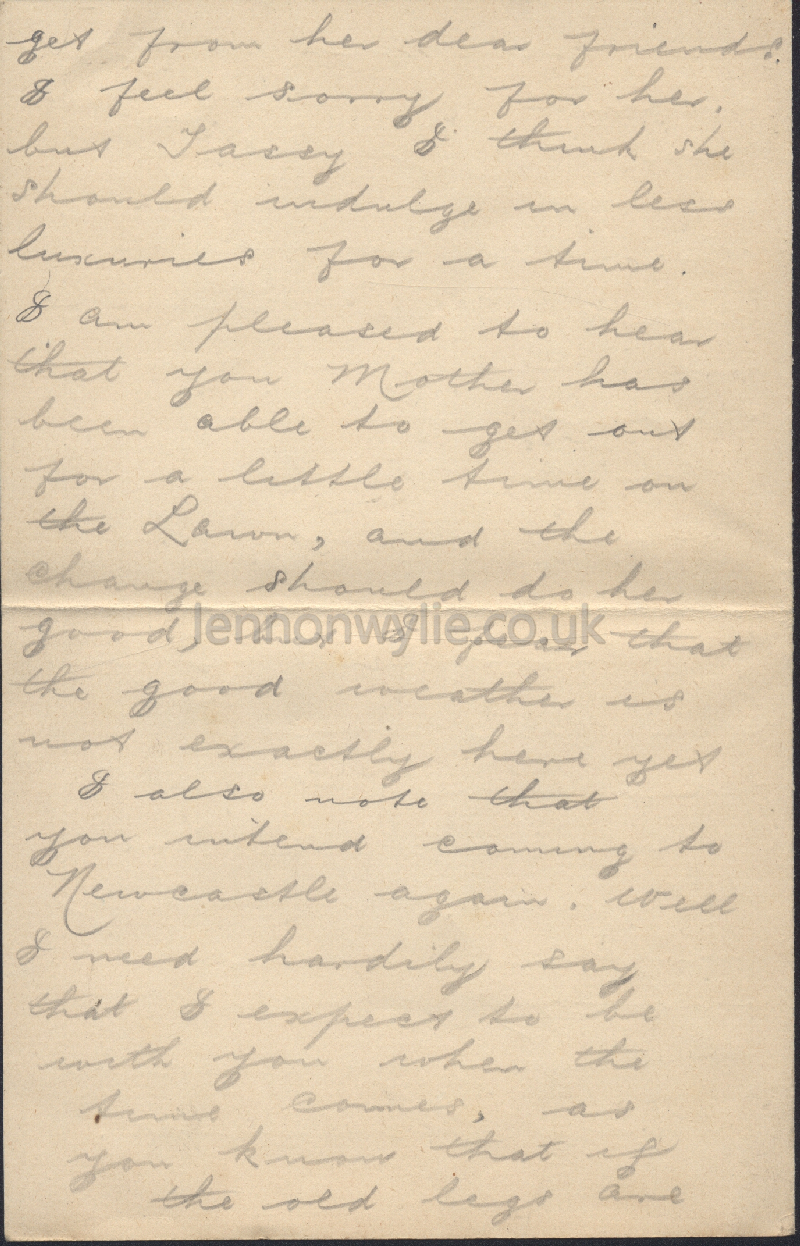 get from her dear friends.
I feel sorry for her,
but Tassy I think she
should indulge in less
luxuries for a time.
I am pleased to hear
that you Mother has
been able to get out
for a little time on
the Lawn, and the
change should do her
good, but I fear that
lennonwylie.co.uk
the good weather is
not exactly here yet
I also note that
you intend coming to
Newcastle again. Well
I need hardily say
that I expect to be
with you when the
time comes, as
you know that if
the old legs are